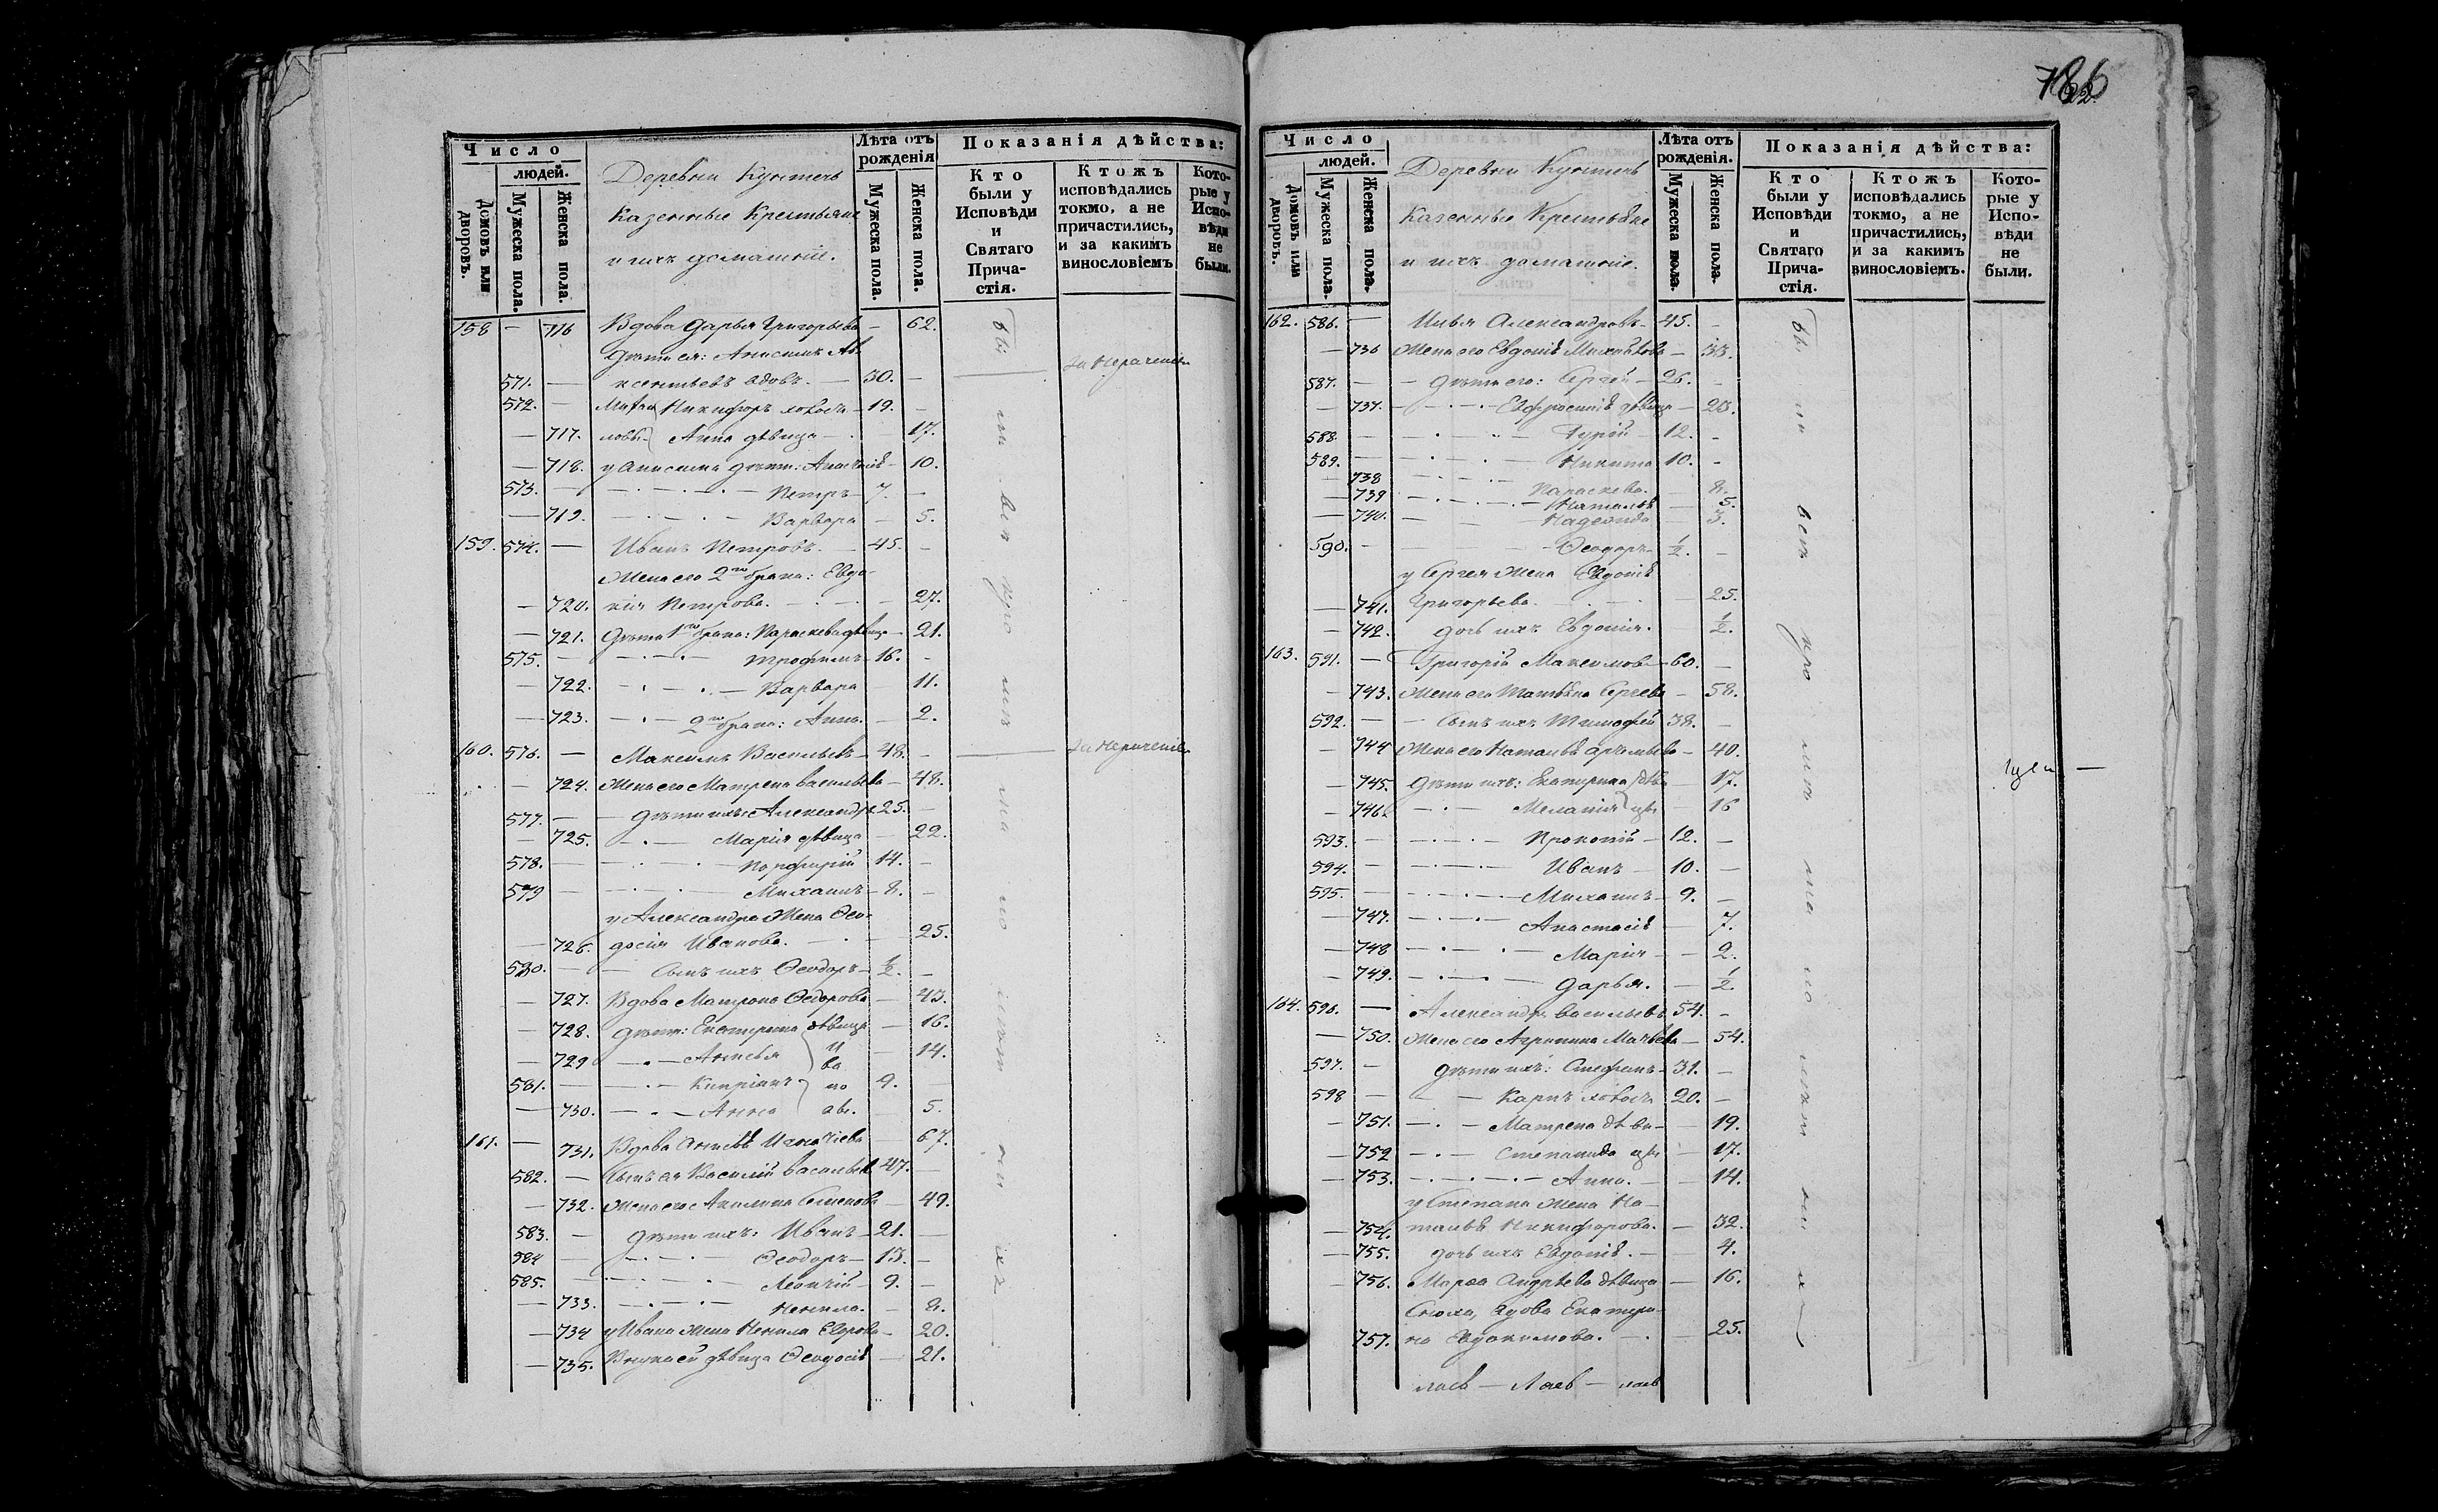 786
Число
людей.
Домовъ или дворовъ.
Мужеска пола.
Женска пола.
Деревни
Казенные Крестьяне
и ихъ домашніе.
Лѣта отъ рожденія
Мужеска пола.
Женска пола.
Показанія дѣйства:
Кто были у Исповѣди и Святаго Причастія.
Ктожъ исповѣдались токмо, а не причастились, и за какимъ винословіемъ
Которые у Исповѣди не были.
158 — 716 Вдова Дарья Григорьева — 62.
Дѣти ея: Анисимъ Ав-
571. — ксентьевъ вдовъ. — 30. —
572. — Никифоръ холостъ — 19. —
— 717. Анна дѣвица — 17.
— 718. у Анисима дѣти: Анастасія — 10.
573. — Петръ — 7. —
— 719. Варвара — 5.
159. 574. — Иванъ Петровъ. — 45. —
Жена его 2го брака: Евдо-
— 720. кія Петрова. — 27.
— 721. Дѣти 1го брака: Параскева дѣвица — 21.
575. — Трофимъ — 16. —
— 722. Варвара — 11.
— 723. 2го брака: Анна. — 2.
160. 576. — Максимъ Васильевъ — 48. —
— 724. Жена его Матрена Васильева — 48.
577. — Дѣти ихъ: Александръ 25. —
— 725. Марія дѣвица — 22.
578. — Порфирій 14. —
579 — Михаилъ — 8. —
у Александра жена Ѳео-
— 726. досія Иванова. — 25.
580. — Сынъ ихъ Ѳеодоръ — ½. —
— 727. Вдова Матрона Ѳедорова — 43.
— 728. Дѣти: Екатерина дѣвица — 16.
— 729 — 14.
581. — Кипріанъ 9. —
— 730. Анна — 5.
161. — 731. Вдова Игнатіева — 67.
582. — Сынъ ея Василій Васильевъ 47. —
— 732. Жена его Акилина Семенова — 49.
583. — Дѣти ихъ: Иванъ — 21. —
584 — Ѳеодоръ — 13. —
585. — Леонтій — 9. —
— 733. Ненила. — 8.
— 734 у Ивана жена Ненила Егорова — 20.
— 735. Внука ей дѣвица Ѳеодосія — 21.
За нераченіе
За нераченіе
Число
людей.
Домовъ или дворовъ.
Мужеска пола.
Женска пола.
Деревни
Казенные Крестьяне
и ихъ домашніе.
Лѣта отъ рожденія.
Мужеска пола.
Женска пола.
Показанія дѣйства:
Кто были у Исповѣди и Святаго Причастія.
Ктожъ исповѣдались токмо, а не причастились, и за какимъ винословіемъ.
Которые у Исповѣди не были.
162. 586. — Илья Александровъ — 45. —
— 736 Жена его Евдокія Михайлова —
587. — Дѣти его: Сергей — 26. —
— 737. Евфросинія дѣвица —
588. — Гурій — 12. —
589. — Никита 10. —
— 738 Параскева. — 8.
— 739 Наталія — 5.
— 740. Надежда — 3.
590. — Ѳеодоръ — ½. —
у Сергея жена Евдокія
— 741. Григорьева. — 25.
— 742. дочь ихъ Евдокія. — ½.
163. 591. — Григорій Максимовъ — 60. —
— 743. Жена его Татьяна Сергеева — 58.
592. — Сынъ ихъ Тимофей 38. —
— 744 Жена его Наталья Артемьева — 40.
— 745. Дѣти ихъ: Екатерина дѣви — 17.
— 746. Меланія цы — 16
593. — Прокопій — 12. —
594. — Иванъ — 10. —
595. — Михаилъ — 9. —
— 747. Анастасія — 7.
— 748 Марія — 2.
— 749. Дарья. — ½
164. 596. — Александръ Васильевъ 54. —
— 750. Жена его Агрипина Матвѣева — 54.
597. — Дѣти ихъ: Стефанъ — 31. —
598 — Карпъ холостъ 20. —
— 751. Матрена дѣви- — 19.
— 752 Степанида цы — 17.
— 753. Анна. — 14.
у Степана жена На-
— 754. талья Никифорова. — 32.
— 755. дочь ихъ Евдокія. — 4.
— 756. Марѳа Андреева дѣвица — 16.
Сноха, вдова Екатери-
— 757. на Евдокимова. — 25.